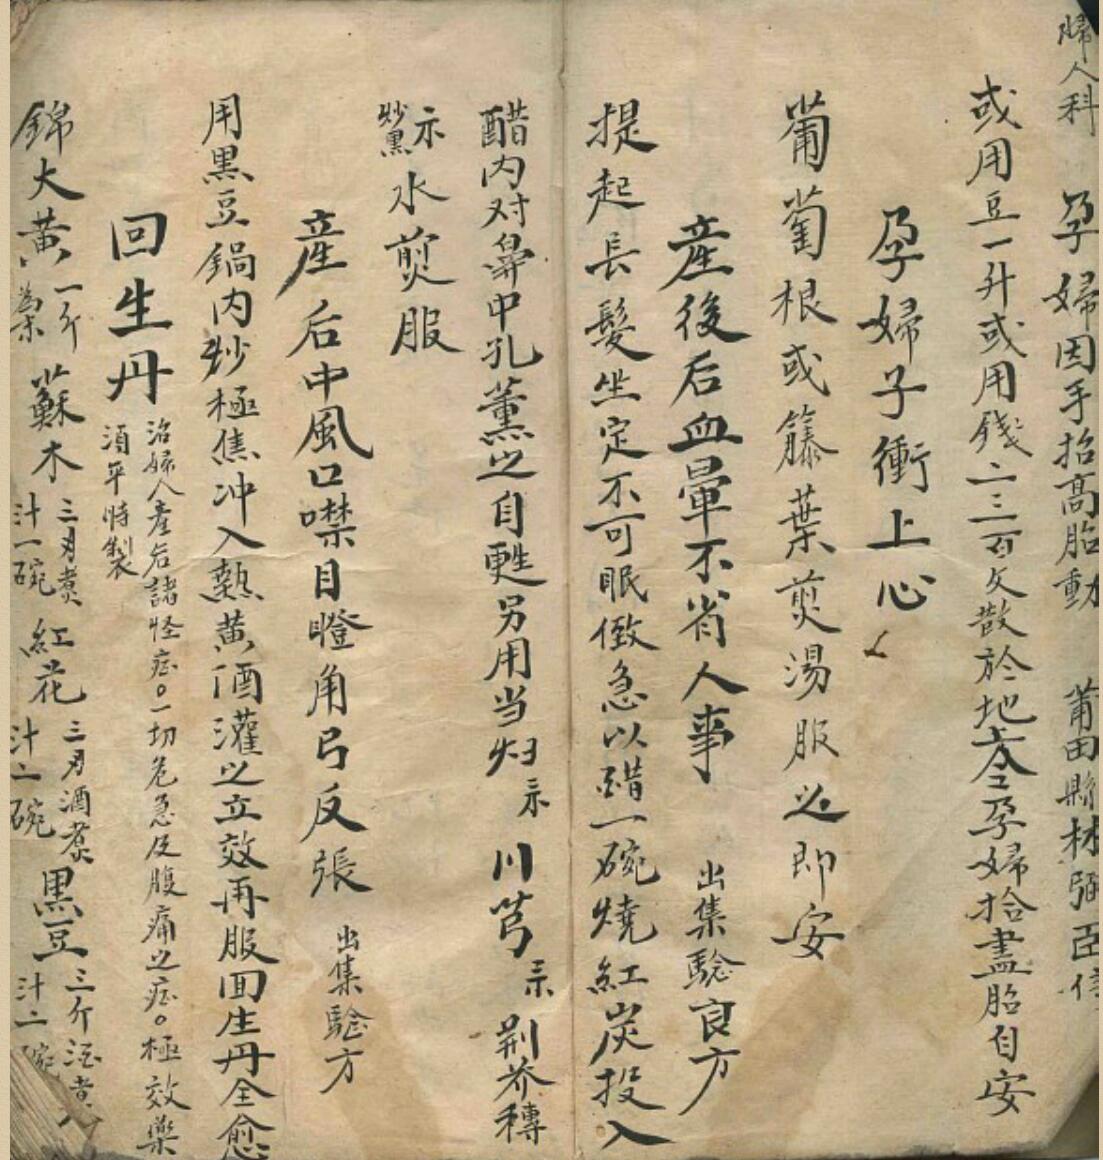 婦人科
孕婦因手抬高胎動 莆田縣林弼臣傳
或用豆一升或用錢二三百文散於地上令孕婦拾盡胎自安
孕婦子衝上心
葡萄根或籐葉煎湯服之即安
產後后血暈不省人事 出集驗良方
提起長髮坐定不可眠倒急以醋一碗燒紅炭投入
醋内对鼻中孔薰之自甦另用当归 川芎 荆芥穗
炒黑 水煎服
産后中風口噤目瞪角弓反張 出集驗方
用黑豆鍋内炒極焦冲入熱黄酒灌之立效再服回生丹全愈
回生丹 治婦人產后諸怪症。一切危急及腹痛之症。極效藥
須平時製
錦大黄一斤為末 蘇木三刃煮汁一碗 紅花三刃酒煮汁二碗 黑豆三斤酒煮汁二碗